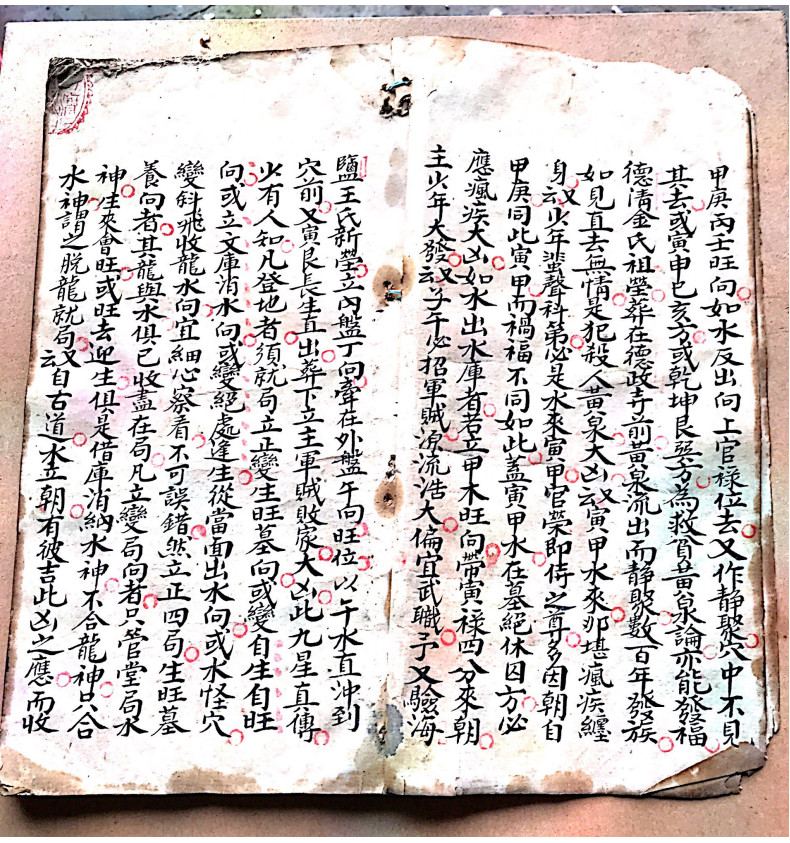 甲庚丙壬旺向如水反出向上官祿位去又作靜聚穴中不見
其去或寅申巳亥方或乾坤艮巽方為救貧黃泉論亦能發福
德清金氏祖塋葬在德政寺前黃泉流出而靜聚數百年發族
如見直去無情是犯殺人黃泉大凶又云寅甲水來那堪瘋疾纏
身又云少年蜚聲科第必是水來寅甲官榮即侍之尊多因朝自
甲庚同此寅甲而禍福不同如此蓋寅甲水在墓絕休囚方必
應瘋疾大凶如水出水庫者若立甲木旺向帶寅祿四分來朝
主少年大發又云子午必招軍賊源流浩大偏宜武職予又驗海
鹽王氏新塋立內盤丁向牽在外盤午向旺位以午水直沖到
穴前又寅艮長生直出葬下立主軍賊敗家大凶此九星直傳
少有人知凡登地者須就局立正變生旺墓向或變自生自旺
向或立文庫消水向或變絕處逢生從當面出水向或水怪穴
變斜飛收龍水向宜細心察看不可誤錯然立正四局生旺墓
養向者其龍與水俱已收盡在局凡立變局向者只管堂局水
神生來會旺或旺去迎生俱是借庫消納水神不合龍神只合
水神謂之脫龍就局又云自古道水立朝有彼吉此凶之應而收